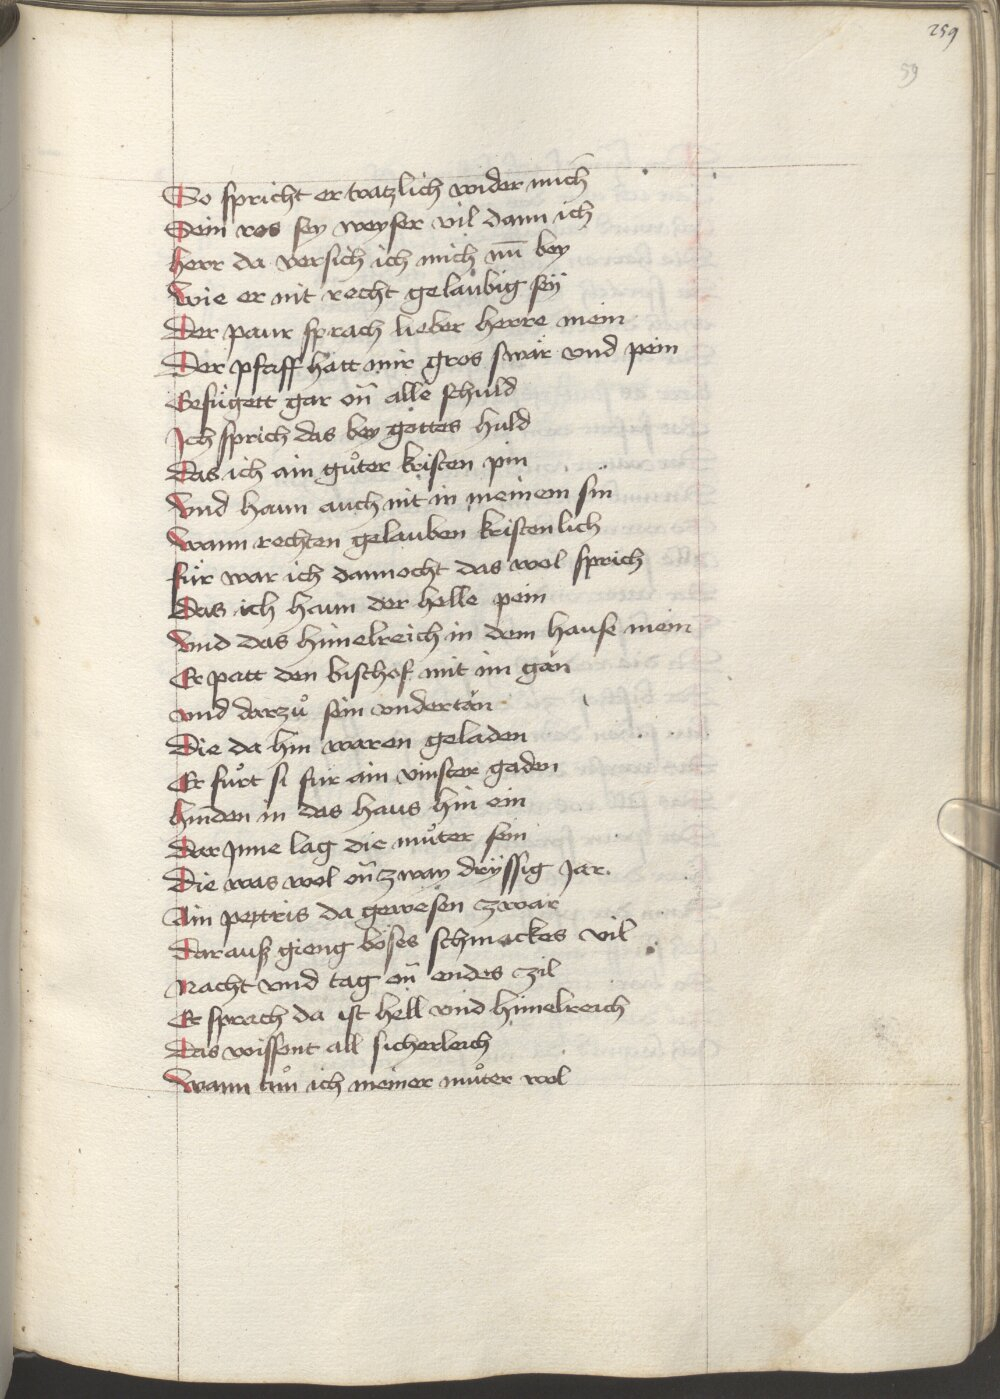 259
59
So spricht er tratzlich wider mich
Sein ros sey weyser vil dann ich
herr da versich ich mich nū bey
Wie er nit recht gelaubig sey
Der paur sprach lieber herre mein
Der pfaff hatt mir gros swär vnd pein
Gefügett gar on̄ alle schuld
Ich sprich das bey gottes huld
Das ich ain gůter kristen pin
Vnd haun auch nit in meinem sin
Wann rechten gelauben kristenlich
für war ich dannocht das wol sprich
Das ich haun der helle pein
Vnd das himelreich in dem hause mein
Er patt den bischof mit im gän
vnd darzů sein vndertän
Die da hin waren geladen
Er fůrt si für ain vinster gaden
hinden in das haus hin ein
Dar Jnne lag die můter sein
Die was wol on̄ zway dryssig Jar
Ain pettris da gewesen zwar
Darauß gieng böses schmackes vil
Nacht vnd tag on̄ endes zil
Er sprach da ist hell vnd himelreich
Das wissent all sicherleich
Wann tůn ich meiner můter wol